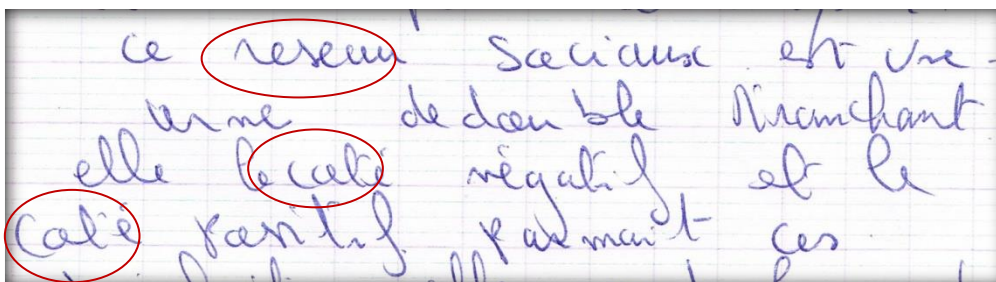 ce reseau sociaux est une
arme de double Tranchant
elle le caté négatif et le
Caté positif parmait ces